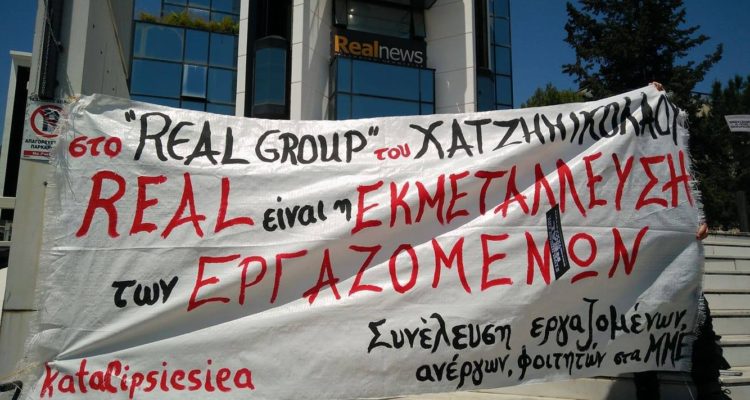 Realnews
ΑΠΑΓΟΡΕΥΕΤΑΙ
στο "REAL GROUP" του ΧΑΤΖΗΝΙΚΟΛΑΟΥ
REAL είναι η ΕΚΜΕΤΑΛΛΕΥΣΗ
των ΕΡΓΑΖΟΜΕΝΩΝ
Συνέλευση εργαζομένων,
ανέργων, φοιτητών στα ΜΜΕ
katalipsiesiea